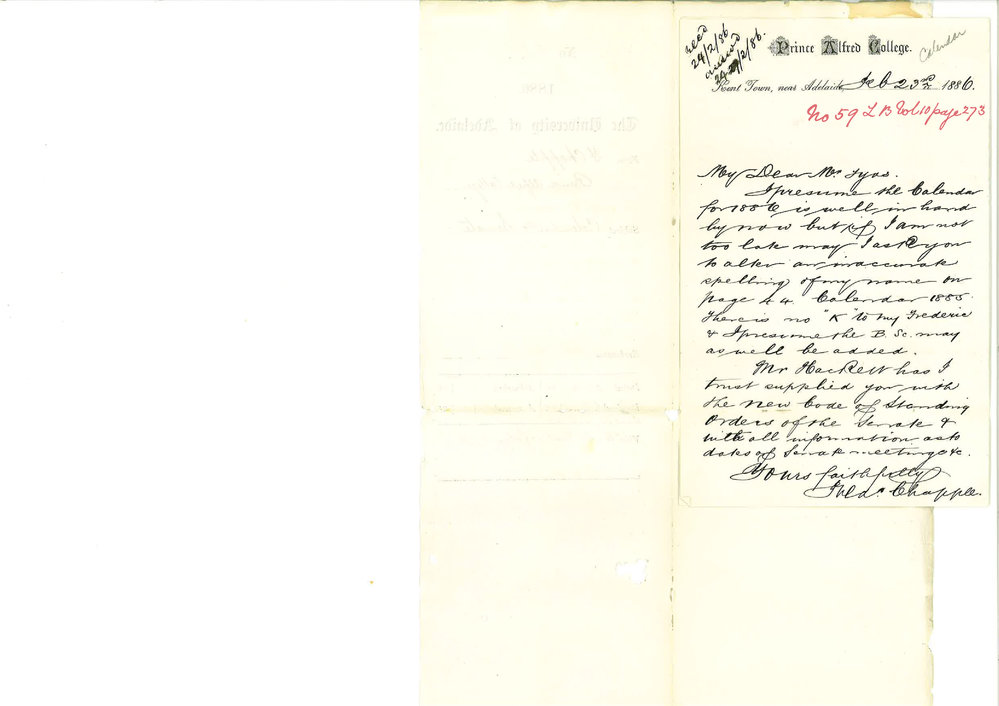 recd
24/2/86
answd
24/2/86.
Calendar
Prince Alfred College.
Kent Town, near Adelaide, Feb 23rd 1886.
No 59 L B Vol 10 page 273
My Dear Mr Tyas.
I presume the Calendar
for 1886 is well in hand
by now but if I am not
too late may I ask you
to alter an inaccurate
spelling of my name on
page 44 Calendar 1885.
There is no "K" to my Frederic
& I presume the B. Sc. may
as well be added.
Mr Hackett has I
trust supplied you with
the new Code of Standing
Orders of the Senate &
with all information as to
dates of Senate meetings &c.
Yours faithfully
Fredc. Chapple.
No.
1886
The University of Adelaide.
Chapple
Prince Alfred College